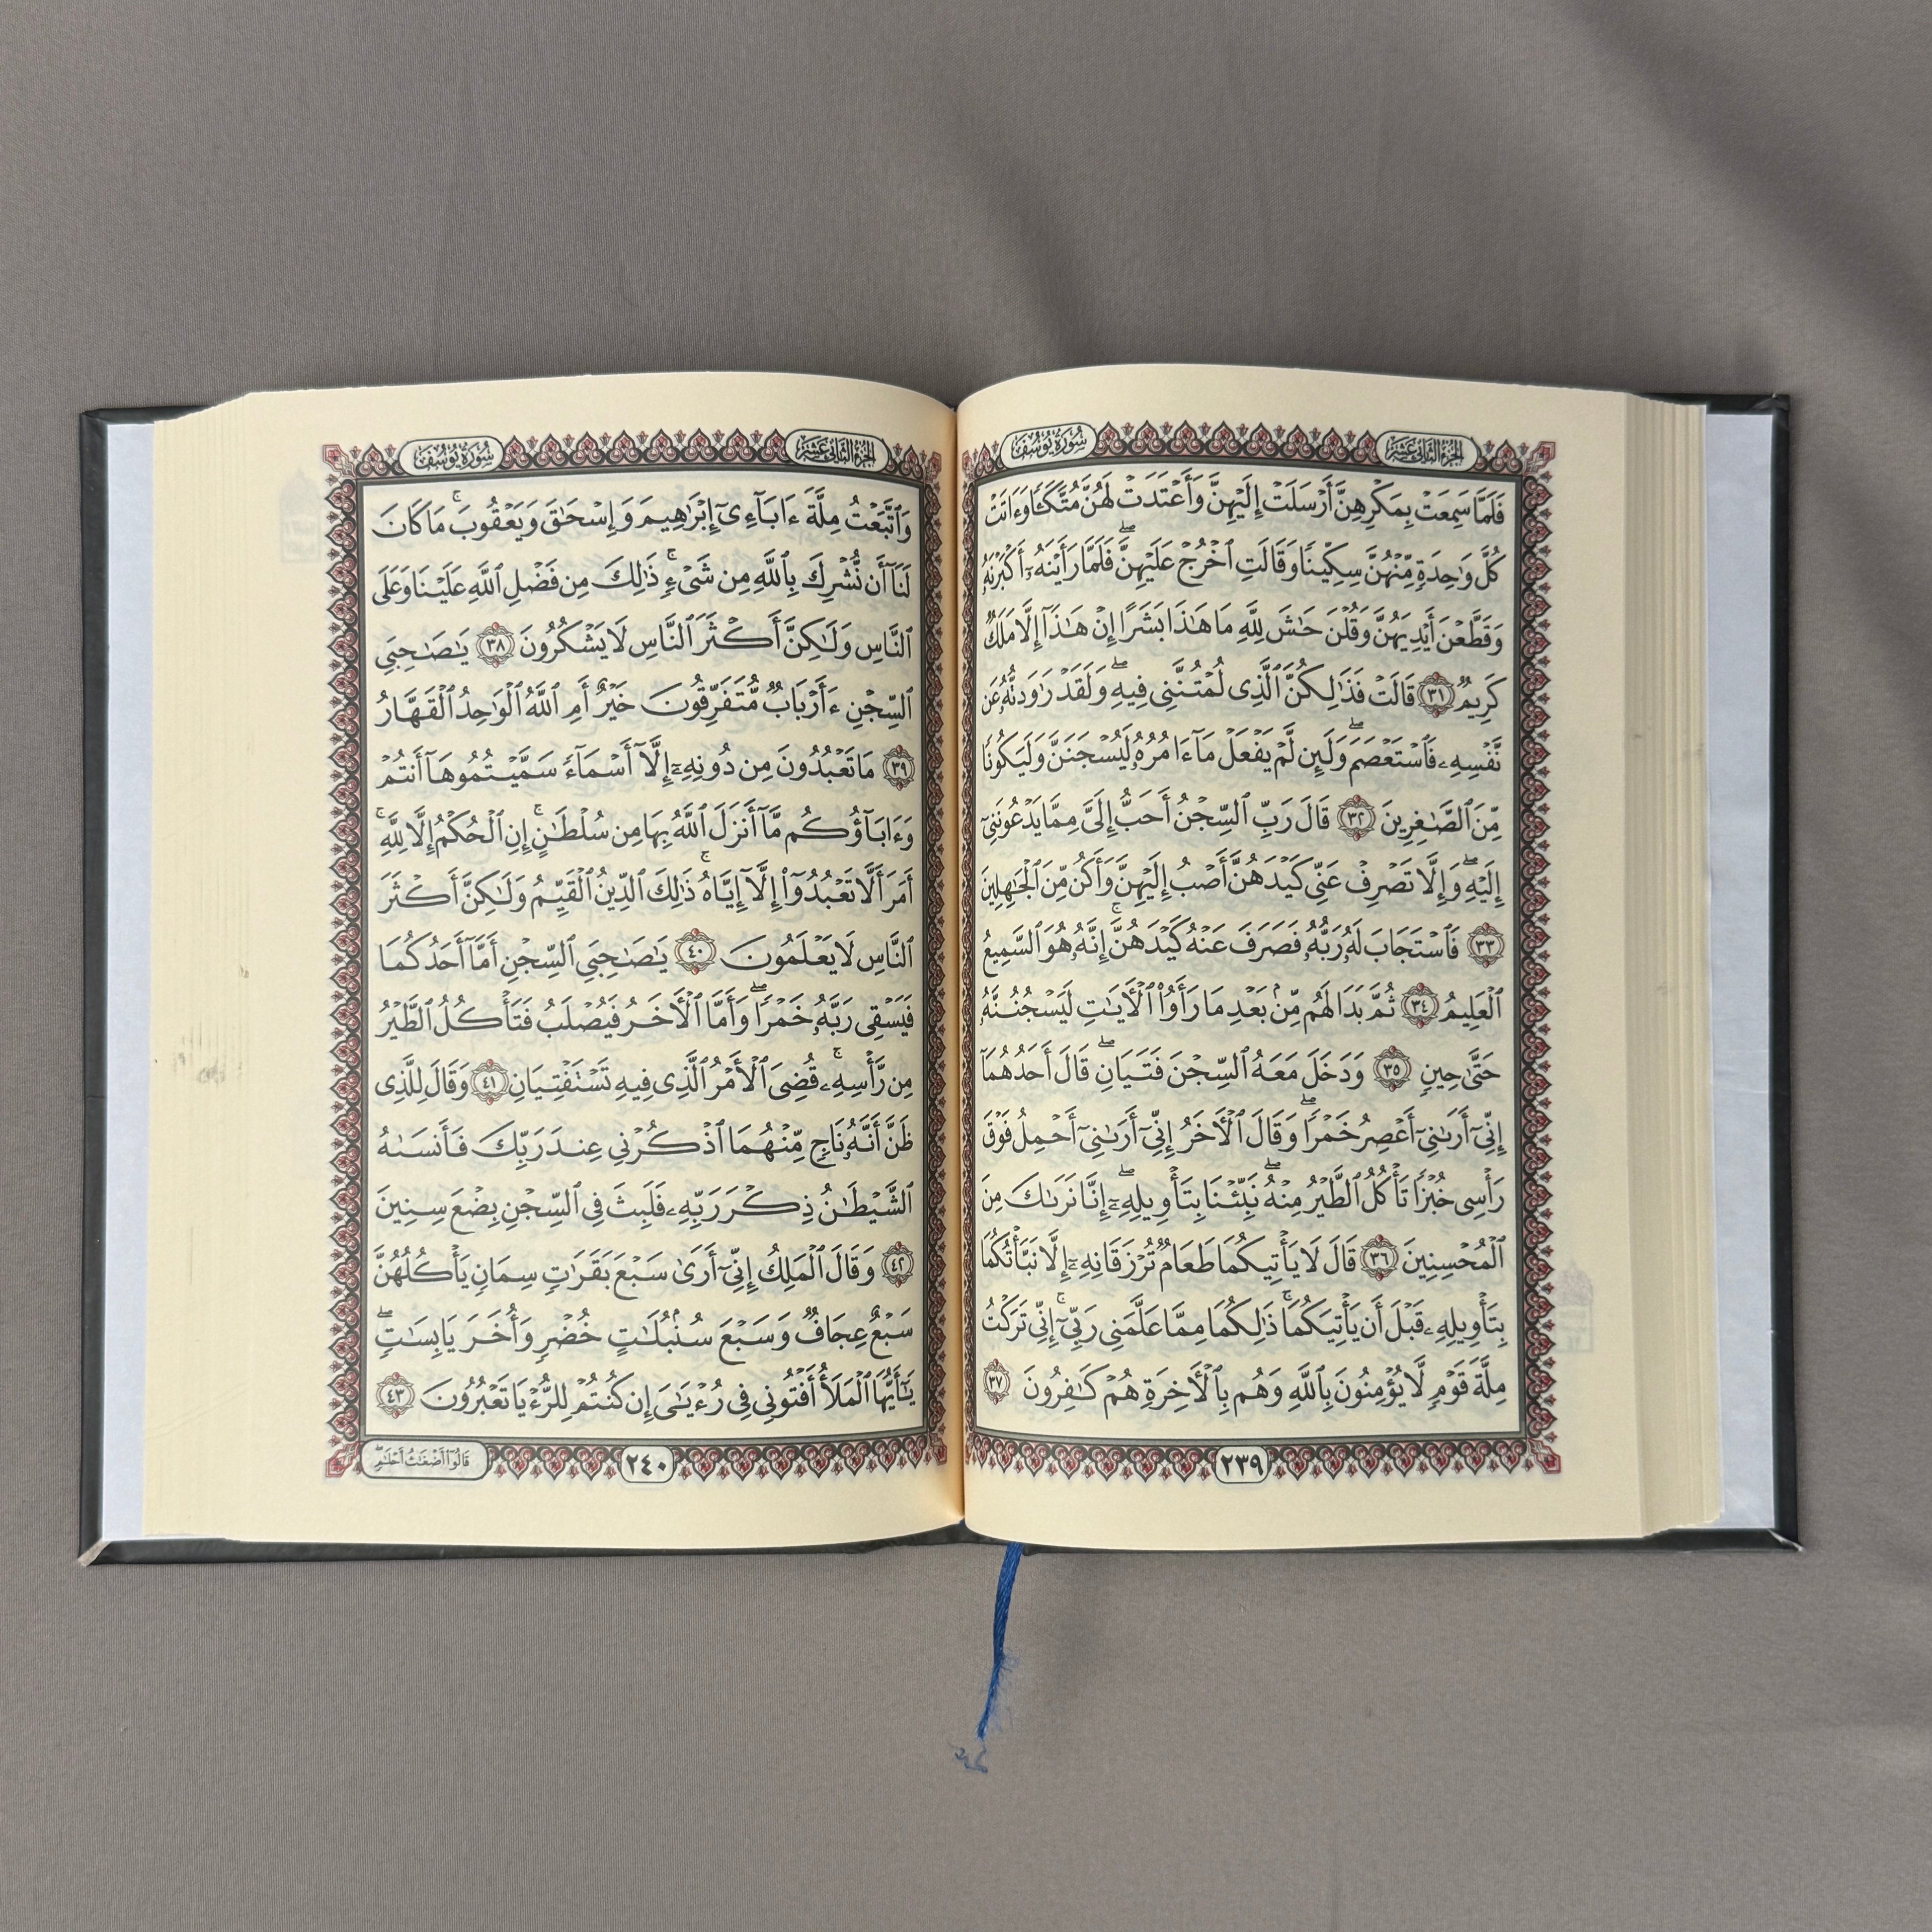 الجزء الثاني عشر
سورة يوسف
فَلَمَّا سَمِعَتْ بِمَكْرِهِنَّ أَرْسَلَتْ إِلَيْهِنَّ وَأَعْتَدَتْ لَهُنَّ مُتَّكَـًٔا وَءَاتَتْ
كُلَّ وَٰحِدَةٍ مِّنْهُنَّ سِكِّينًا وَقَالَتِ ٱخْرُجْ عَلَيْهِنَّ ۖ فَلَمَّا رَأَيْنَهُۥٓ أَكْبَرْنَهُۥ
وَقَطَّعْنَ أَيْدِيَهُنَّ وَقُلْنَ حَٰشَ لِلَّهِ مَا هَٰذَا بَشَرًا إِنْ هَٰذَآ إِلَّا مَلَكٌ
كَرِيمٌ ٣١ قَالَتْ فَذَٰلِكُنَّ ٱلَّذِى لُمْتُنَّنِى فِيهِ ۖ وَلَقَدْ رَٰوَدتُّهُۥ عَن
نَّفْسِهِۦ فَٱسْتَعْصَمَ ۖ وَلَئِن لَّمْ يَفْعَلْ مَآ ءَامُرُهُۥ لَيُسْجَنَنَّ وَلَيَكُونًا
مِّنَ ٱلصَّٰغِرِينَ ٣٢ قَالَ رَبِّ ٱلسِّجْنُ أَحَبُّ إِلَىَّ مِمَّا يَدْعُونَنِىٓ
إِلَيْهِ ۖ وَإِلَّا تَصْرِفْ عَنِّى كَيْدَهُنَّ أَصْبُ إِلَيْهِنَّ وَأَكُن مِّنَ ٱلْجَٰهِلِينَ
٣٣ فَٱسْتَجَابَ لَهُۥ رَبُّهُۥ فَصَرَفَ عَنْهُ كَيْدَهُنَّ ۚ إِنَّهُۥ هُوَ ٱلسَّمِيعُ
ٱلْعَلِيمُ ٣٤ ثُمَّ بَدَا لَهُم مِّنۢ بَعْدِ مَا رَأَوُا۟ ٱلْـَٔايَٰتِ لَيَسْجُنُنَّهُۥ
حَتَّىٰ حِينٍ ٣٥ وَدَخَلَ مَعَهُ ٱلسِّجْنَ فَتَيَانِ ۖ قَالَ أَحَدُهُمَآ
إِنِّىٓ أَرَىٰنِىٓ أَعْصِرُ خَمْرًا ۖ وَقَالَ ٱلْـَٔاخَرُ إِنِّىٓ أَرَىٰنِىٓ أَحْمِلُ فَوْقَ
رَأْسِى خُبْزًا تَأْكُلُ ٱلطَّيْرُ مِنْهُ ۖ نَبِّئْنَا بِتَأْوِيلِهِۦٓ ۖ إِنَّا نَرَىٰكَ مِنَ
ٱلْمُحْسِنِينَ ٣٦ قَالَ لَا يَأْتِيكُمَا طَعَامٌ تُرْزَقَانِهِۦٓ إِلَّا نَبَّأْتُكُمَا
بِتَأْوِيلِهِۦ قَبْلَ أَن يَأْتِيَكُمَا ۚ ذَٰلِكُمَا مِمَّا عَلَّمَنِى رَبِّىٓ ۚ إِنِّى تَرَكْتُ
مِلَّةَ قَوْمٍ لَّا يُؤْمِنُونَ بِٱللَّهِ وَهُم بِٱلْـَٔاخِرَةِ هُمْ كَٰفِرُونَ ٣٧
٢٣٩
الجزء الثاني عشر
سورة يوسف
وَٱتَّبَعْتُ مِلَّةَ ءَابَآءِىٓ إِبْرَٰهِيمَ وَإِسْحَٰقَ وَيَعْقُوبَ ۚ مَا كَانَ
لَنَآ أَن نُّشْرِكَ بِٱللَّهِ مِن شَىْءٍ ۚ ذَٰلِكَ مِن فَضْلِ ٱللَّهِ عَلَيْنَا وَعَلَى
ٱلنَّاسِ وَلَٰكِنَّ أَكْثَرَ ٱلنَّاسِ لَا يَشْكُرُونَ ٣٨ يَٰصَٰحِبَىِ
ٱلسِّجْنِ ءَأَرْبَابٌ مُّتَفَرِّقُونَ خَيْرٌ أَمِ ٱللَّهُ ٱلْوَٰحِدُ ٱلْقَهَّارُ
٣٩ مَا تَعْبُدُونَ مِن دُونِهِۦٓ إِلَّآ أَسْمَآءً سَمَّيْتُمُوهَآ أَنتُمْ
وَءَابَآؤُكُم مَّآ أَنزَلَ ٱللَّهُ بِهَا مِن سُلْطَٰنٍ ۚ إِنِ ٱلْحُكْمُ إِلَّا لِلَّهِ ۚ
أَمَرَ أَلَّا تَعْبُدُوٓا۟ إِلَّآ إِيَّاهُ ۚ ذَٰلِكَ ٱلدِّينُ ٱلْقَيِّمُ وَلَٰكِنَّ أَكْثَرَ
ٱلنَّاسِ لَا يَعْلَمُونَ ٤٠ يَٰصَٰحِبَىِ ٱلسِّجْنِ أَمَّآ أَحَدُكُمَا
فَيَسْقِى رَبَّهُۥ خَمْرًا ۖ وَأَمَّا ٱلْـَٔاخَرُ فَيُصْلَبُ فَتَأْكُلُ ٱلطَّيْرُ
مِن رَّأْسِهِۦ ۚ قُضِىَ ٱلْأَمْرُ ٱلَّذِى فِيهِ تَسْتَفْتِيَانِ ٤١ وَقَالَ لِلَّذِى
ظَنَّ أَنَّهُۥ نَاجٍ مِّنْهُمَا ٱذْكُرْنِى عِندَ رَبِّكَ فَأَنسَىٰهُ
ٱلشَّيْطَٰنُ ذِكْرَ رَبِّهِۦ فَلَبِثَ فِى ٱلسِّجْنِ بِضْعَ سِنِينَ
٤٢ وَقَالَ ٱلْمَلِكُ إِنِّىٓ أَرَىٰ سَبْعَ بَقَرَٰتٍ سِمَانٍ يَأْكُلُهُنَّ
سَبْعٌ عِجَافٌ وَسَبْعَ سُنۢبُلَٰتٍ خُضْرٍ وَأُخَرَ يَابِسَٰتٍ ۖ
يَٰٓأَيُّهَا ٱلْمَلَأُ أَفْتُونِى فِى رُءْيَٰىَ إِن كُنتُمْ لِلرُّءْيَا تَعْبُرُونَ ٤٣
٢٤٠
قَالُوٓا۟ أَضْغَٰثُ أَحْلَٰمٍ ۖ